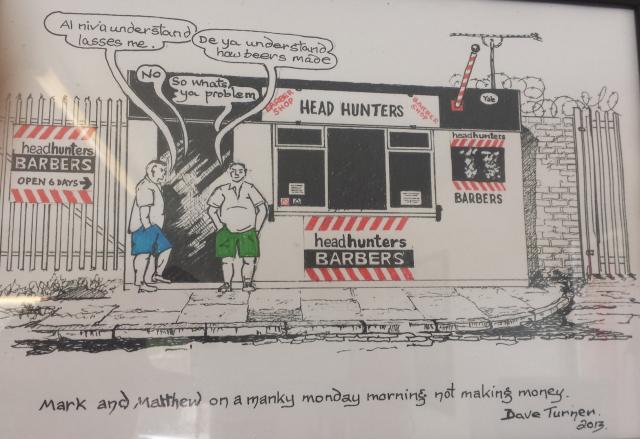 Al niva understand
lasses me.
De ya understand
how beers made
No
So whats
ya problem
BARBER
SHOP
HEAD HUNTERS
BARBER
SHOP
Yale
headhunters
BARBERS
OPEN 6 DAYS →
headhunters
BARBERS
headhunters
BARBERS
Mark and Matthew on a manky monday morning not making money.
Dave Turner.
2013.